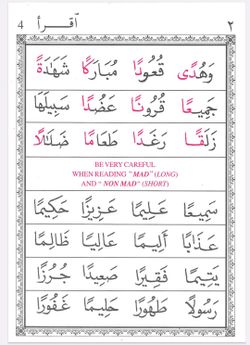 4 أقرأ ٢
وَهُدًى قُعُودًا مُبَارَكًا شَهَادَةً
جَمِيعًا قُرُونًا عَضُدًا سَبِيلَهَا
زَلَقًا رَغَدًا طَعَامًا ضَلَالًا
BE VERY CAREFUL
WHEN READING "MAD" (LONG)
AND " NON MAD" (SHORT)
سَمِيعًا عَلِيمًا عَزِيزًا حَكِيمًا
عَذَابًا أَلِيمًا عَالِيًا ظَالِمًا
يَتِيمًا فَقِيرًا صَعِيدًا جُرُزًا
رَسُولًا طَهُورًا حَلِيمًا غَفُورًا